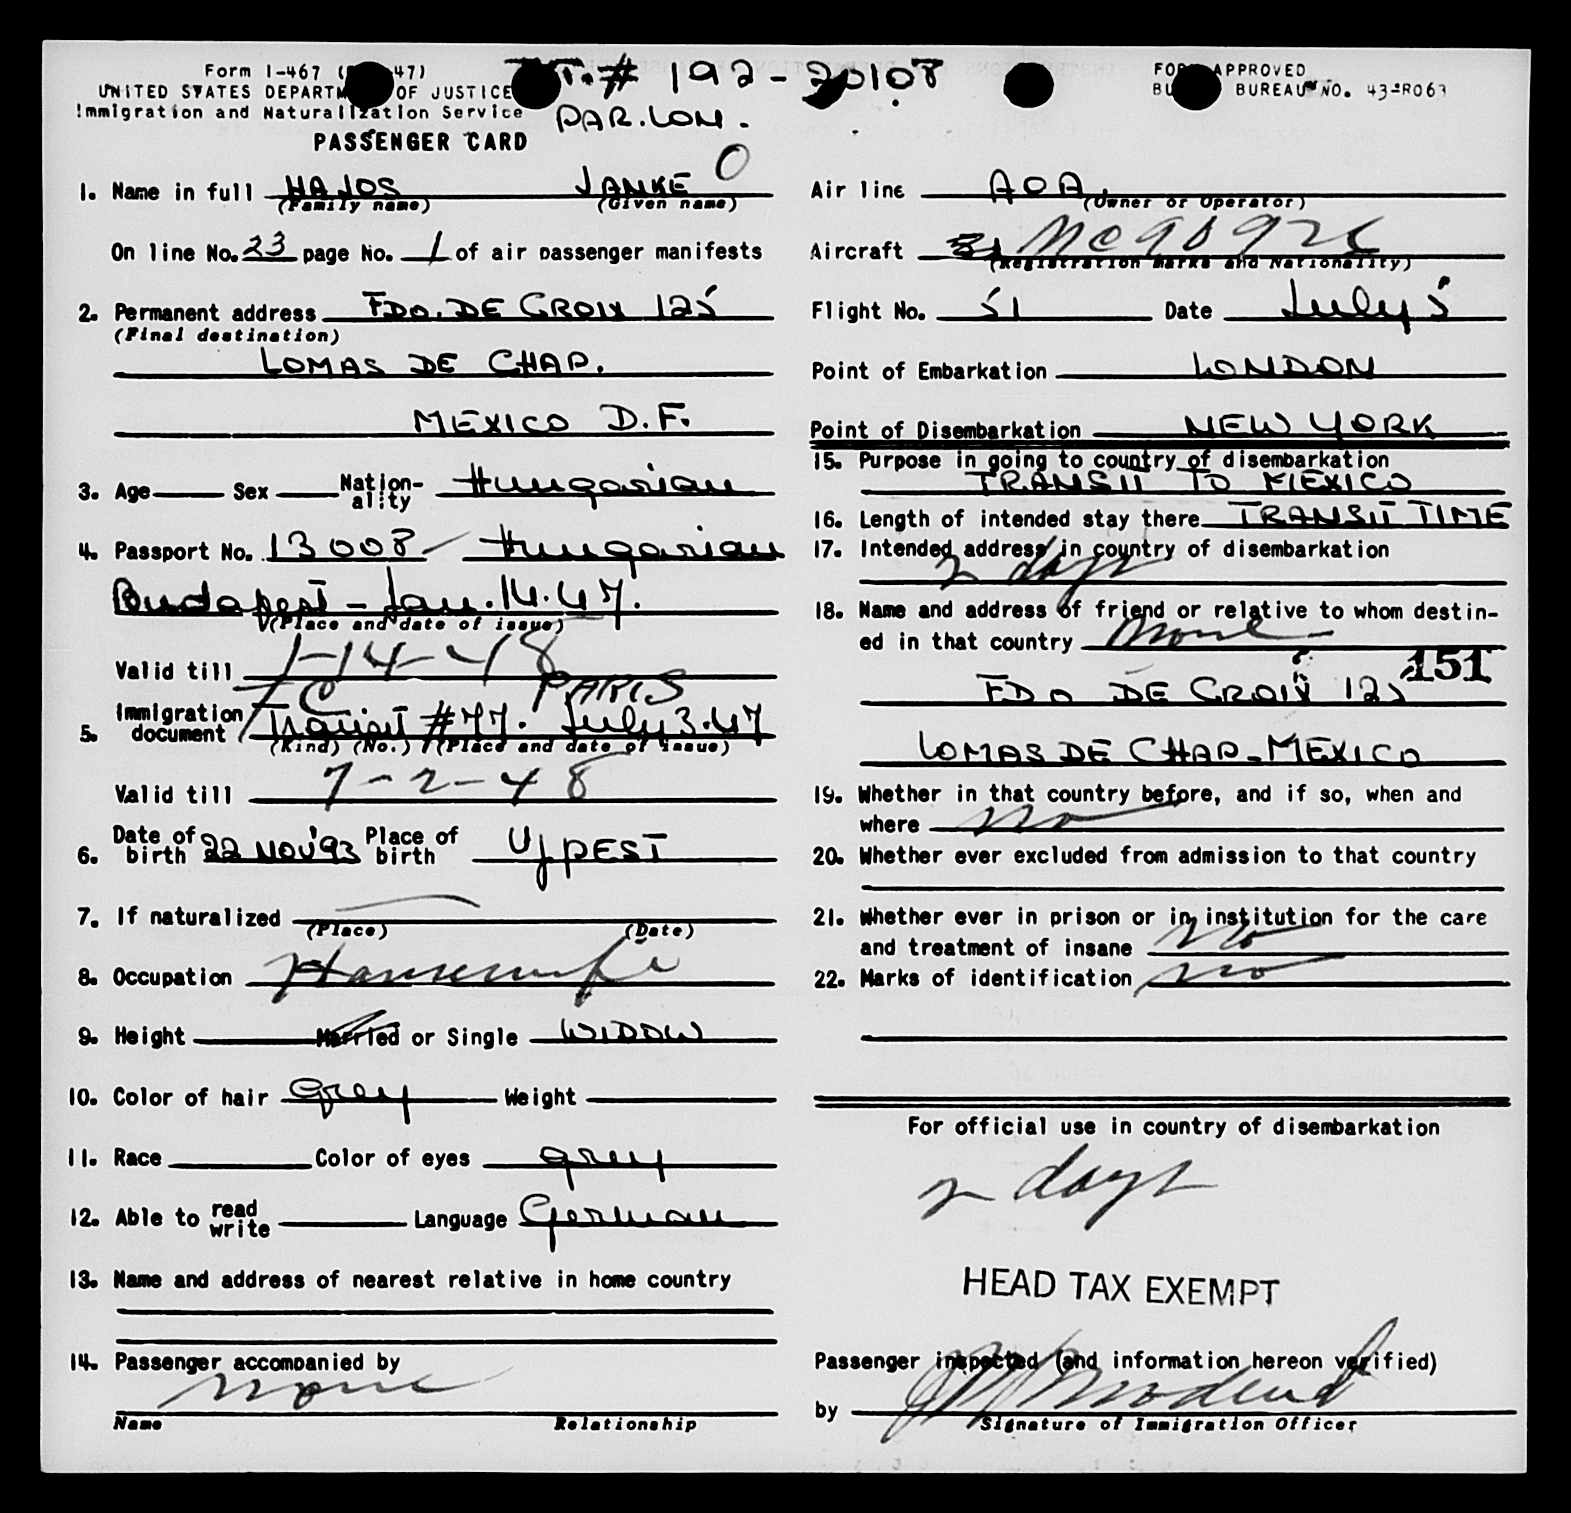 Form I-467 ( 47)
UNITED STATES DEPARTM OF JUSTICE
Immigration and Naturalization Service
PASSENGER CARD
T.# 192-20108
PAR.LON.
FO APPROVED
BU BUREAU NO. 43-R063
1. Name in full HAJOS JANKE O
(Family name) (Given name)
On line No. 23 page No. 1 of air passenger manifests
2. Permanent address FDO. DE CROIX 125
(Final destination)
LOMAS DE CHAP.
MEXICO D.F.
3. Age Sex Nation-ality Hungarian
4. Passport No. 13008 Hungarian
Budapest - Jan. 14. 47.
(Place and date of issue)
Valid till 1-14-48
TC PARIS
5. Immigration document Transit #77. July 3.47
(Kind) (No.) (Place and date of issue)
Valid till 7-2-48
6. Date of birth 22 NOV '93 Place of birth UjPEST
7. If naturalized
(Place) (Date)
8. Occupation Housewife
9. Height Married or Single WIDOW
10. Color of hair Grey Weight
11. Race Color of eyes grey
12. Able to read write Language German
13. Name and address of nearest relative in home country
14. Passenger accompanied by
none
Name Relationship
Air line AOA.
(Owner or Operator)
Aircraft NC90926
(Registration marks and Nationality)
Flight No. 51 Date July 5
Point of Embarkation LONDON
Point of Disembarkation NEW YORK
15. Purpose in going to country of disembarkation
TRANSIT TO MEXICO
16. Length of intended stay there TRANSIT TIME
17. Intended address in country of disembarkation
2 days
18. Name and address of friend or relative to whom destin-
ed in that country none
151
FDO DE CROIX 125
LOMAS DE CHAP-MEXICO
19. Whether in that country before, and if so, when and
where no
20. Whether ever excluded from admission to that country
21. Whether ever in prison or in institution for the care
and treatment of insane no
22. Marks of identification no
For official use in country of disembarkation
2 days
HEAD TAX EXEMPT
Passenger inspected (and information hereon verified)
by
Signature of Immigration Officer